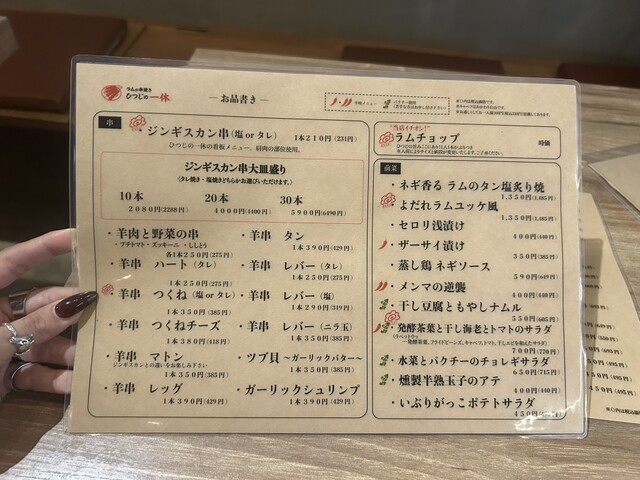 ラムの串焼き
ひつじの一休
―お品書き―
辛味メニュー
パクチー使用
串
ジンギスカン串(塩 or タレ) 1本210円(231円)
ひつじの一休の看板メニュー。肩肉の部位使用。
ジンギスカン串大皿盛り
(タレ焼き・塩焼きどちらかお選びいただけます。)
10本 20本 30本
2080円(2288円) 4000円(4400円) 5900円(6490円)
・羊肉と野菜の串
・プチトマト・ズッキーニ・ししとう
各1本250円(275円)
・羊串 タン
1本390円(429円)
・羊串 ハート(タレ)
1本250円(275円)
・羊串 レバー(タレ)
1本250円(275円)
・羊串 つくね(塩 or タレ)
1本350円(385円)
・羊串 レバー(塩)
1本290円(319円)
・羊串 つくねチーズ
1本380円(418円)
・羊串 レバー(ニラ玉)
1本350円(385円)
・羊串 マトン
ジンギスカンとの違いをお楽しみ下さい
1本350円(385円)
・ツブ貝 〜ガーリックバター〜
1本350円(385円)
・羊串 レッグ
1本390円(429円)
・ガーリックシュリンプ
1本390円(429円)
"当店イチオシ!"
ラムチョップ 時価
前菜
・ネギ香る ラムのタン塩炙り焼
1,350円(1,485円)
・よだれラムユッケ風
1,350円(1,485円)
・セロリ浅漬け
400円(440円)
・ザーサイ漬け
350円(385円)
・蒸し鶏 ネギソース
590円(649円)
・メンマの逆襲
400円(440円)
・干し豆腐ともやしナムル
550円(605円)
・発酵茶葉と干し海老とトマトのサラダ
(ラペットゥ
〜発酵茶葉、フライドビーンズ、キャベツ、トマト、干しエビを和えたサラダ)
700円(770円)
・水菜とパクチーのチョレギサラダ
650円(715円)
・燻製半熟玉子のアテ
400円(440円)
・いぶりがっこポテトサラダ
450円